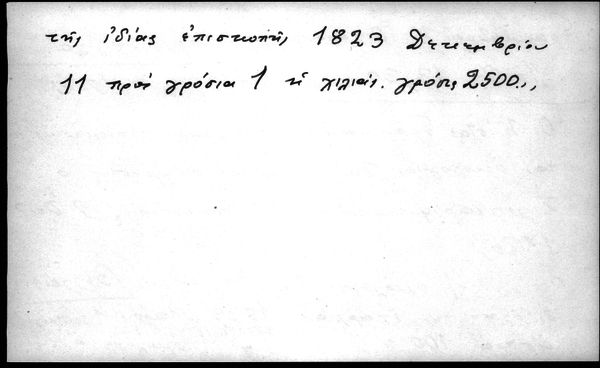 τῆς ἰδίας ἐπισκοπῆς 1823 Δεκεμβρίου
11 πρὸς γρόσια 1 ἡ χιλιάς. γρόσια 2500.,,